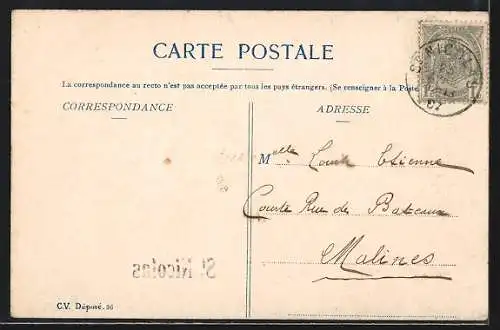 CARTE POSTALE
La correspondance au recto n'est pas acceptée par tous les pays étrangers. (Se renseigner à la Poste
CORRESPONDANCE
ADRESSE
Melle Etienne
Courte Rue des Bateaux
Malines
St Nicolas
C.V. Déposé. 36